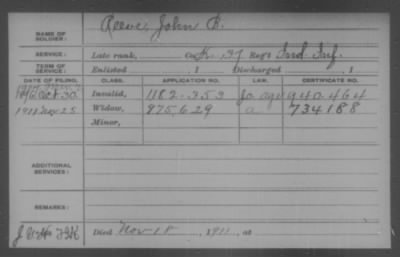 NAME OF SOLDIER: Reeve, John B.
SERVICE: Late rank, Co. K. 137 Reg't Ind Inf.
TERM OF SERVICE: Enlisted , 1 Discharged , 1
DATE OF FILING. CLASS. APPLICATION NO. LAW. CERTIFICATE NO.
Oct 30 Invalid, 1182.353 940.464
1911 Nov 25 Widow, 975,629 a 734188
Minor,
ADDITIONAL SERVICES:
REMARKS:
Died Nov 18, 1911, at